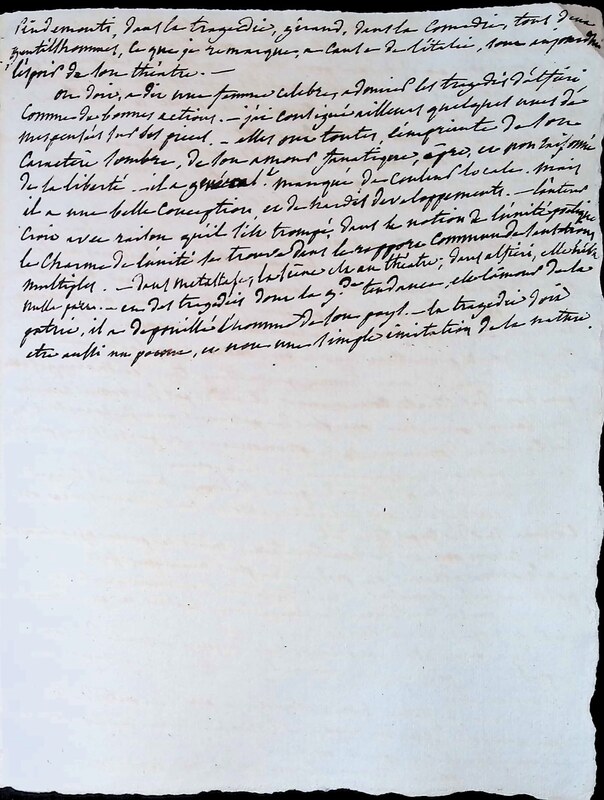 pindemonti, dans la tragédie, gérand, dans la comédie, tous deux
gentilshommes, ce que je remarque, a cause de l'italie, sont aujourd'hui
l'espoir de son théâtre. —
on doit, a dit une femme celebre, admirer les tragédies d'alfieri
comme de bonnes actions. — j'ai consigné ailleurs quelques unes de
mes pensées sur ses pieces. — elles ont toutes, l'empreinte de son
caractère sombre, de son amour fanatique, âpre, et non raisonné
de la liberté. — il a généralt. manqué de couleur locale. mais
il a une belle conception, et de hardis développements. —
crois avec raison qu'il s'est trompé, dans la notion de l'unité poëtique
le charme de l'unité se trouve dans le rapport commun de
multiples. — dans metastase, la scène est au théâtre; dans alfieri, elle n'est
nulle part. — en des tragédies dont la gde tendance, est l'amour de la
patrie, il a dépouillé l'homme de son pays. — la tragédie doit
etre aussi un poeme, et non une simple imitation de la nature.